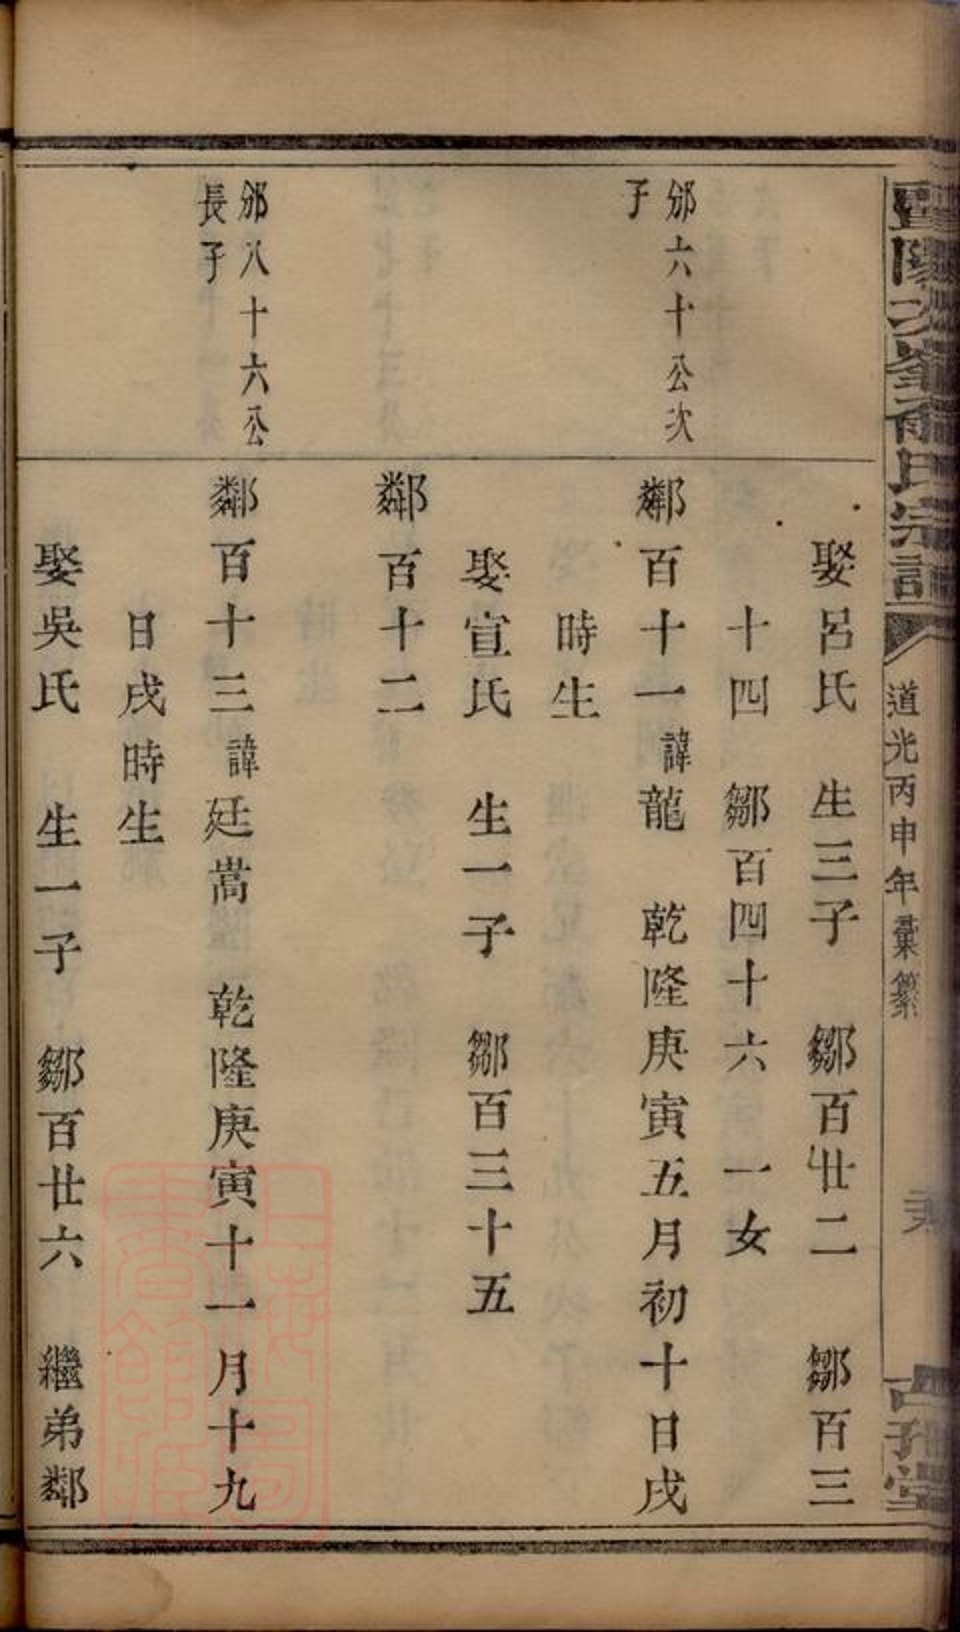 道光丙申年彙纂
娶呂氏 生三子 鄒百廿二 鄒百三
十四 鄒百四十六 一女
邠六十公次
子
鄰百十一諱龍 乾隆庚寅五月初十日戌
時生
娶宣氏 生一子 鄒百三十五
鄰百十二
邠八十六公
長子
鄰百十三諱廷嵩 乾隆庚寅十一月十九
日戌時生
娶吳氏 生一子 鄒百廿六 繼弟鄰